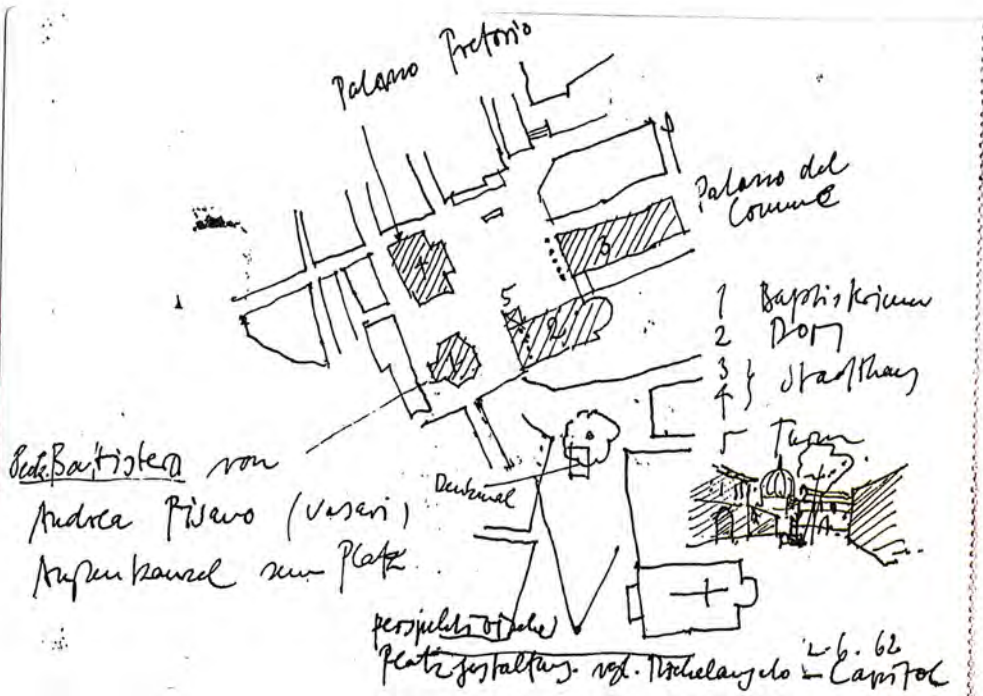 Palazzo Pretorio
Palazzo del
Comune
1 Baptisterium
2 DOM
3 } Stadthaus
4
5 Turm
1
2
3
4
5
Battistero von
Andrea Pisano (Vasari)
Außenkanzel zum Platz
Denkmal
perspektivische
Platzgestaltung. vgl. Michelangelo – Capitol
2.6.62